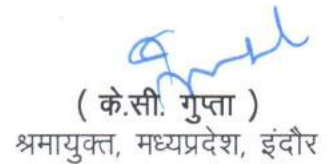 ( के.सी. गुप्ता )
श्रमायुक्त, मध्यप्रदेश, इंदौर